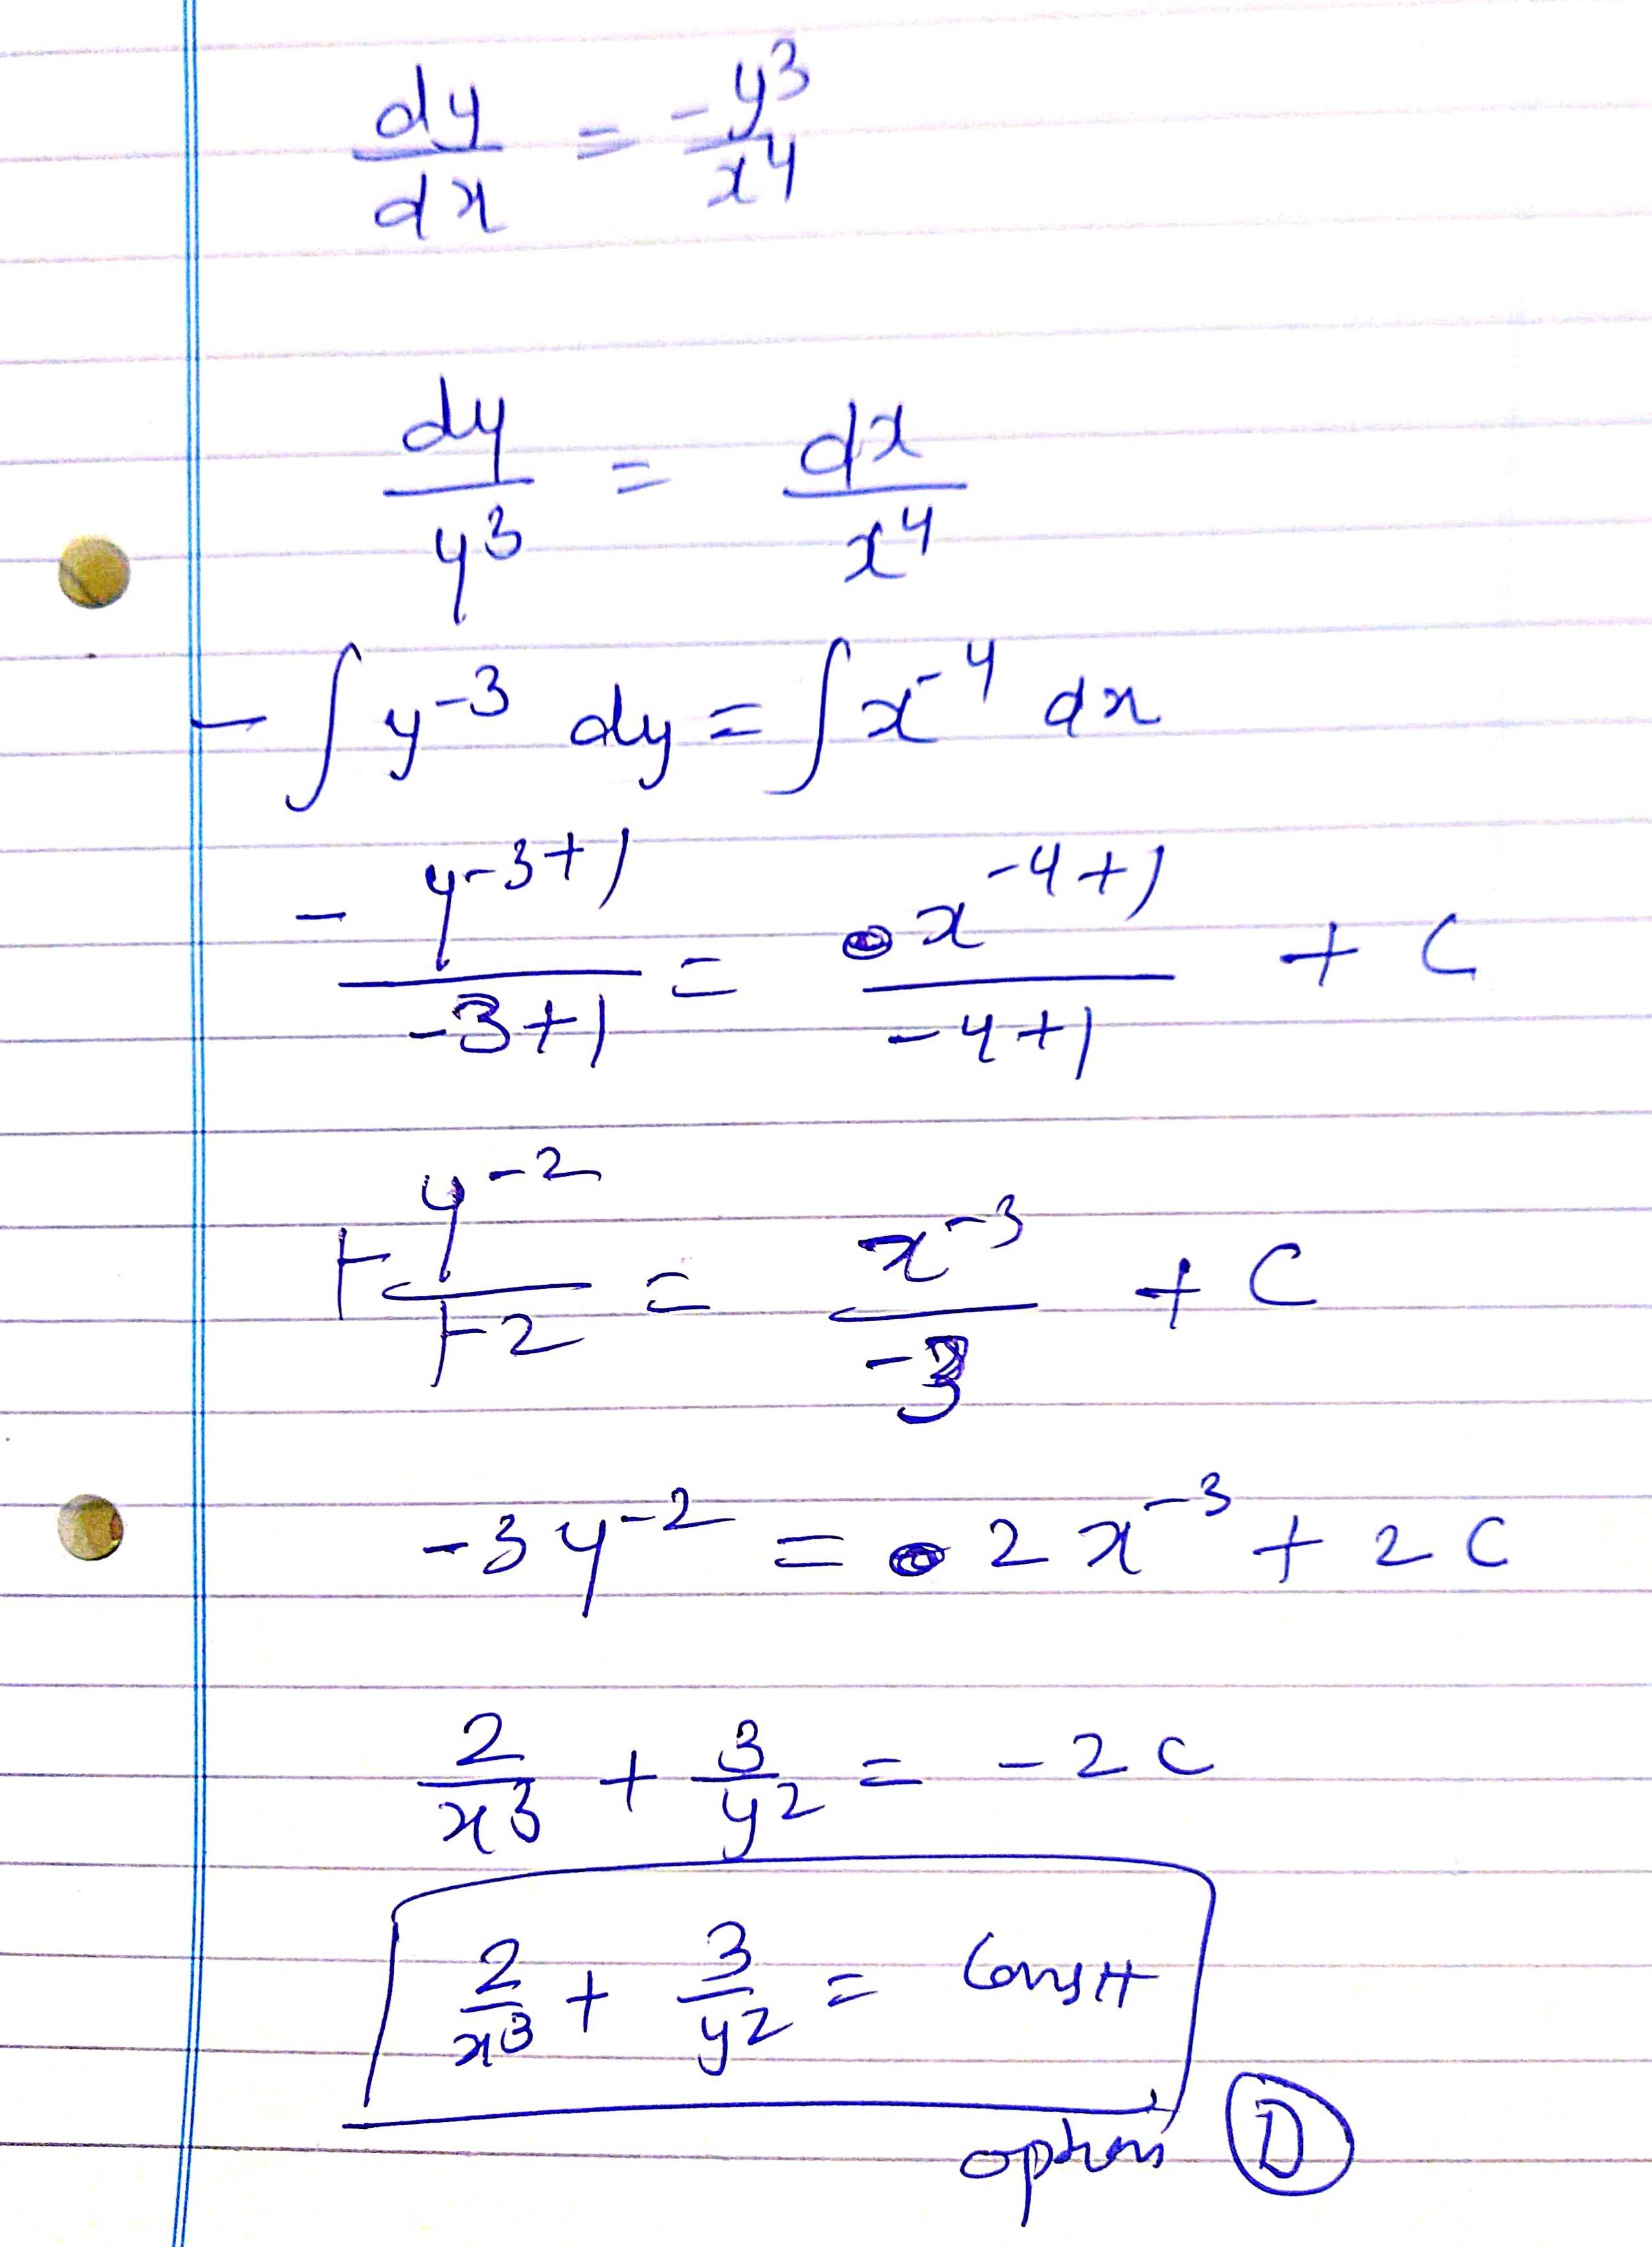 dy/dx = -y³/x⁴
dy/y³ = dx/x⁴
-∫ y⁻³ dy = ∫ x⁻⁴ dx
- y⁻³⁺¹/-3+1 = x⁻⁴⁺¹/-4+1 + C
+ y⁻²/+2 = x⁻³/-3 + C
-3y⁻² = 2x⁻³ + 2C
2/x³ + 3/y² = -2C
2/x³ + 3/y² = Constt
option D